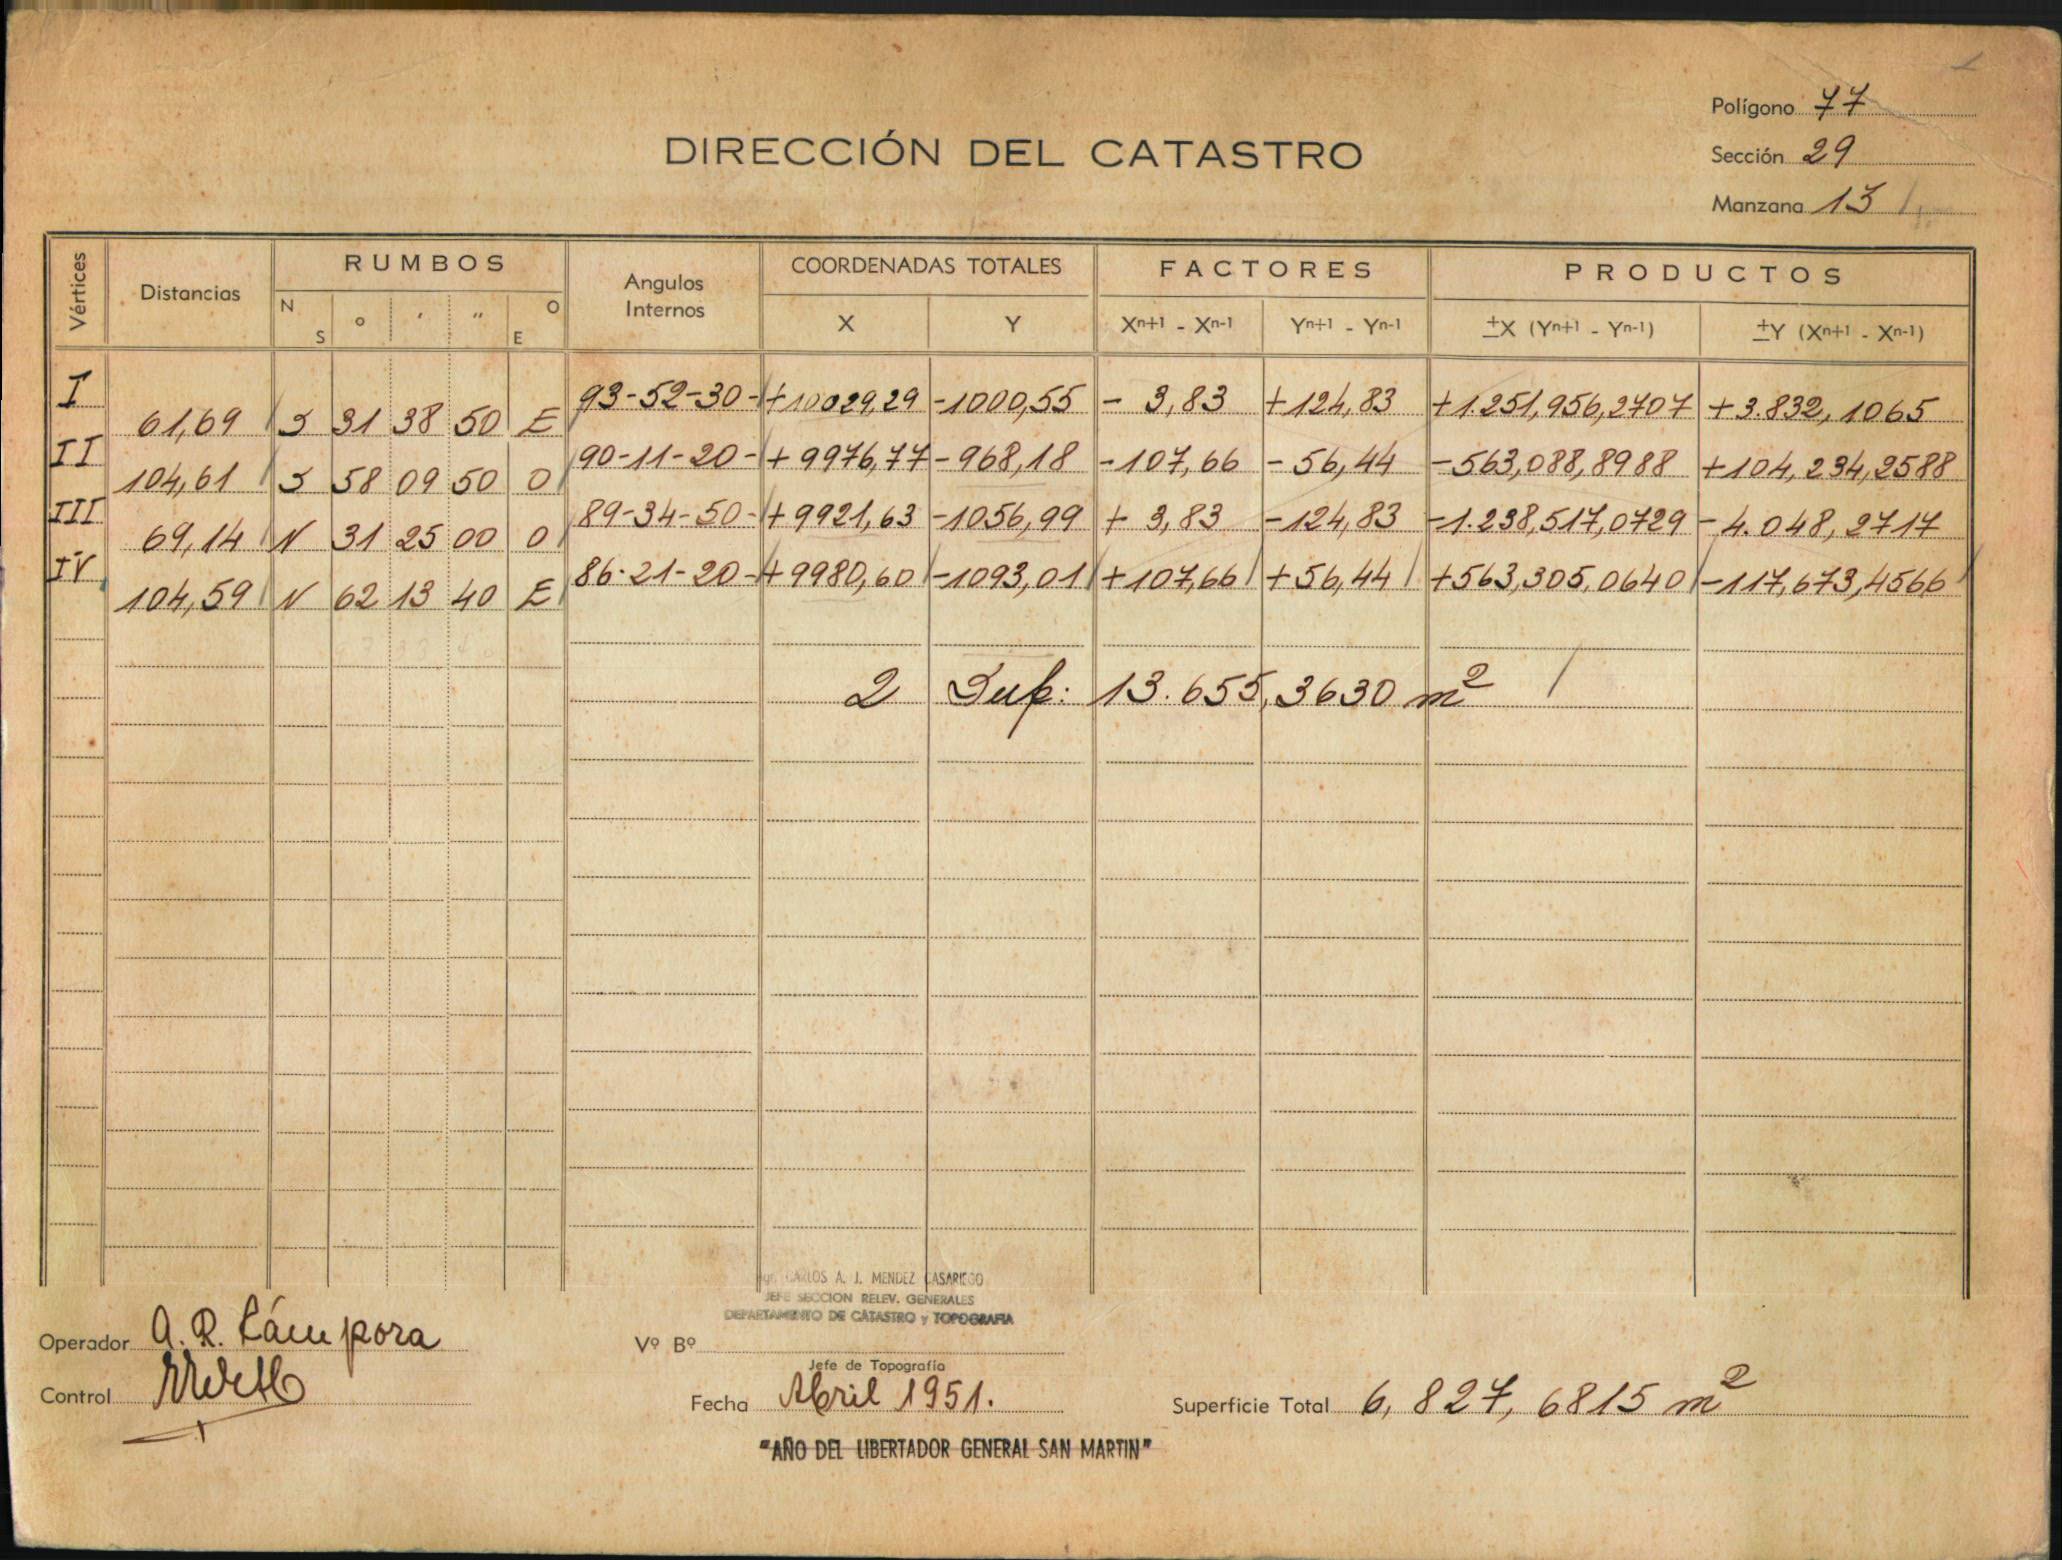 Polígono 77
DIRECCIÓN DEL CATASTRO
Sección 29
Manzana 13
Vértices Distancias RUMBOS Angulos Internos COORDENADAS TOTALES FACTORES PRODUCTOS
N S ° ′ ″ O E X Y Xn+1 - Xn-1 Yn+1 - Yn-1 ±X (Yn+1 - Yn-1) ±Y (Xn+1 - Xn-1)
I 93-52-30- +10029,29 -1000,55 - 3,83 +124,83 +1.251,956,2707 +3.832,1065
61,69 S 31 38 50 E
II 90-11-20- +9976,77 -968,18 -107,66 -56,44 -563,088,8988 +104,234,2588
104,61 S 58 09 50 O
III 89-34-50- +9921,63 -1056,99 + 3,83 -124,83 -1.238,517,0729 -4.048,2717
69,14 N 31 25 00 O
IV 86-21-20- +9980,60 -1093,01 +107,66 +56,44 +563,305,0640 -117,673,4566
104,59 N 62 13 40 E
2 Sup: 13.655,3630 m²
CARLOS A. J. MENDEZ CASARIEGO
JEFE SECCION RELEV. GENERALES
DEPARTAMENTO DE CATASTRO y TOPOGRAFIA
Operador A. R. Cámpora
Vº Bº
Jefe de Topografía
Control
Fecha Abril 1951.
Superficie Total 6,827,6815 m²
"AÑO DEL LIBERTADOR GENERAL SAN MARTIN"